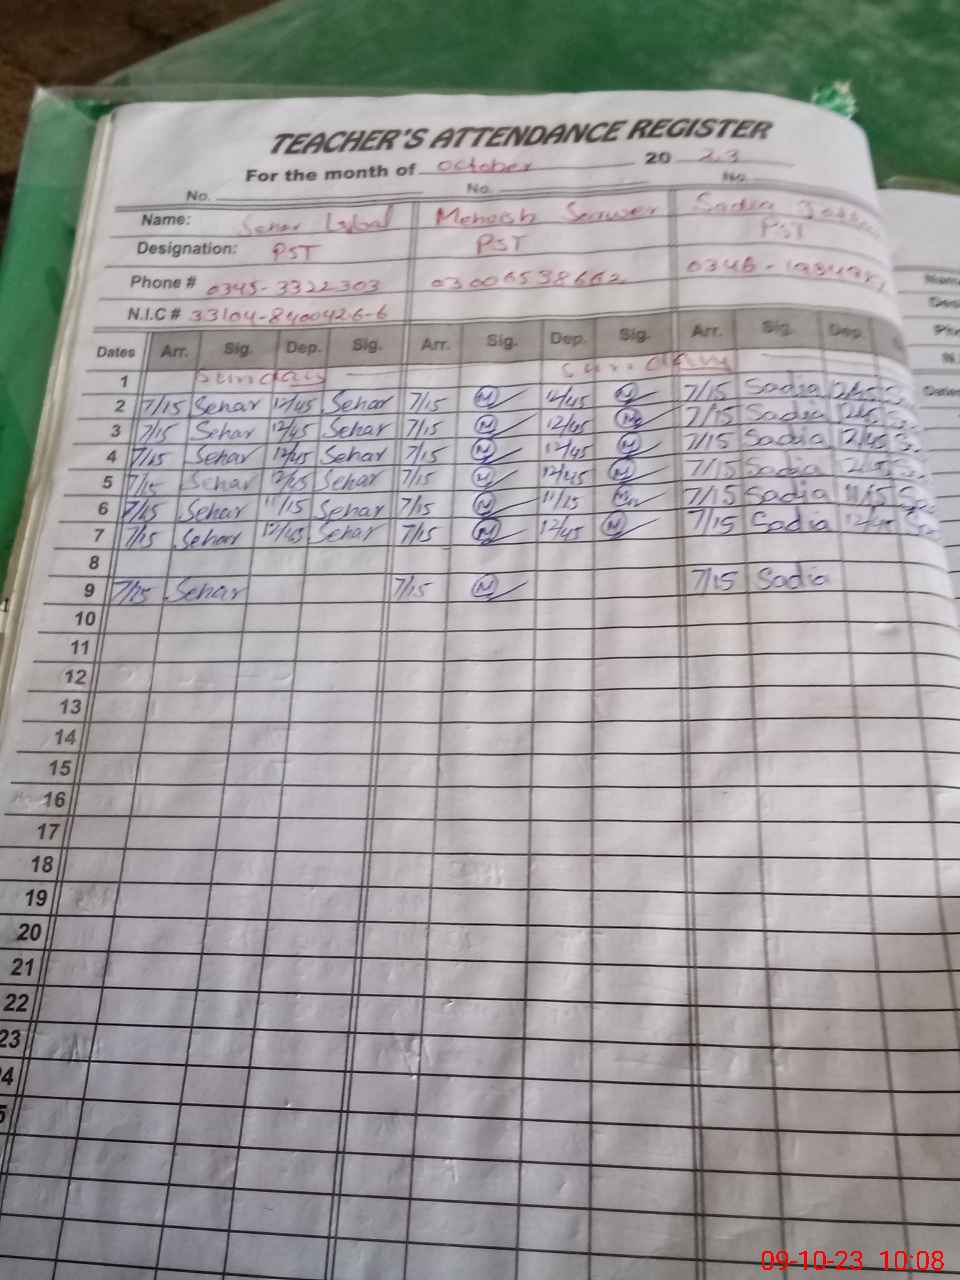 TEACHER'S ATTENDANCE REGISTER
For the month of October 20 23
No. No. No.
Name: Sehar Iqbal Mehwish Sarwer Sadia
Designation: PST PST PST
Phone # 0345-3322303 03006538662 0346-
N.I.C # 33104-8400426-6
Dates Arr. Sig. Dep. Sig. Arr. Sig. Dep. Sig. Arr. Sig. Dep.
1 Sunday Sunday
2 7/15 Sehar 12/45 Sehar 7/15 M 12/45 M 7/15 Sadia 12/45
3 7/15 Sehar 12/45 Sehar 7/15 M 12/45 M 7/15 Sadia 12/45
4 7/15 Sehar 12/45 Sehar 7/15 M 12/45 M 7/15 Sadia 12/45
5 7/15 Sehar 12/45 Sehar 7/15 M 12/45 M 7/15 Sadia
6 7/15 Sehar 11/15 Sehar 7/15 M 11/15 7/15 Sadia 11/15
7 7/15 Sehar 12/45 Sehar 7/15 M 12/45 M 7/15 Sadia 12/45
8
9 7/15 Sehar 7/15 M 7/15 Sadia
10
11
12
13
14
15
16
17
18
19
20
21
22
23
09-10-23 10:08